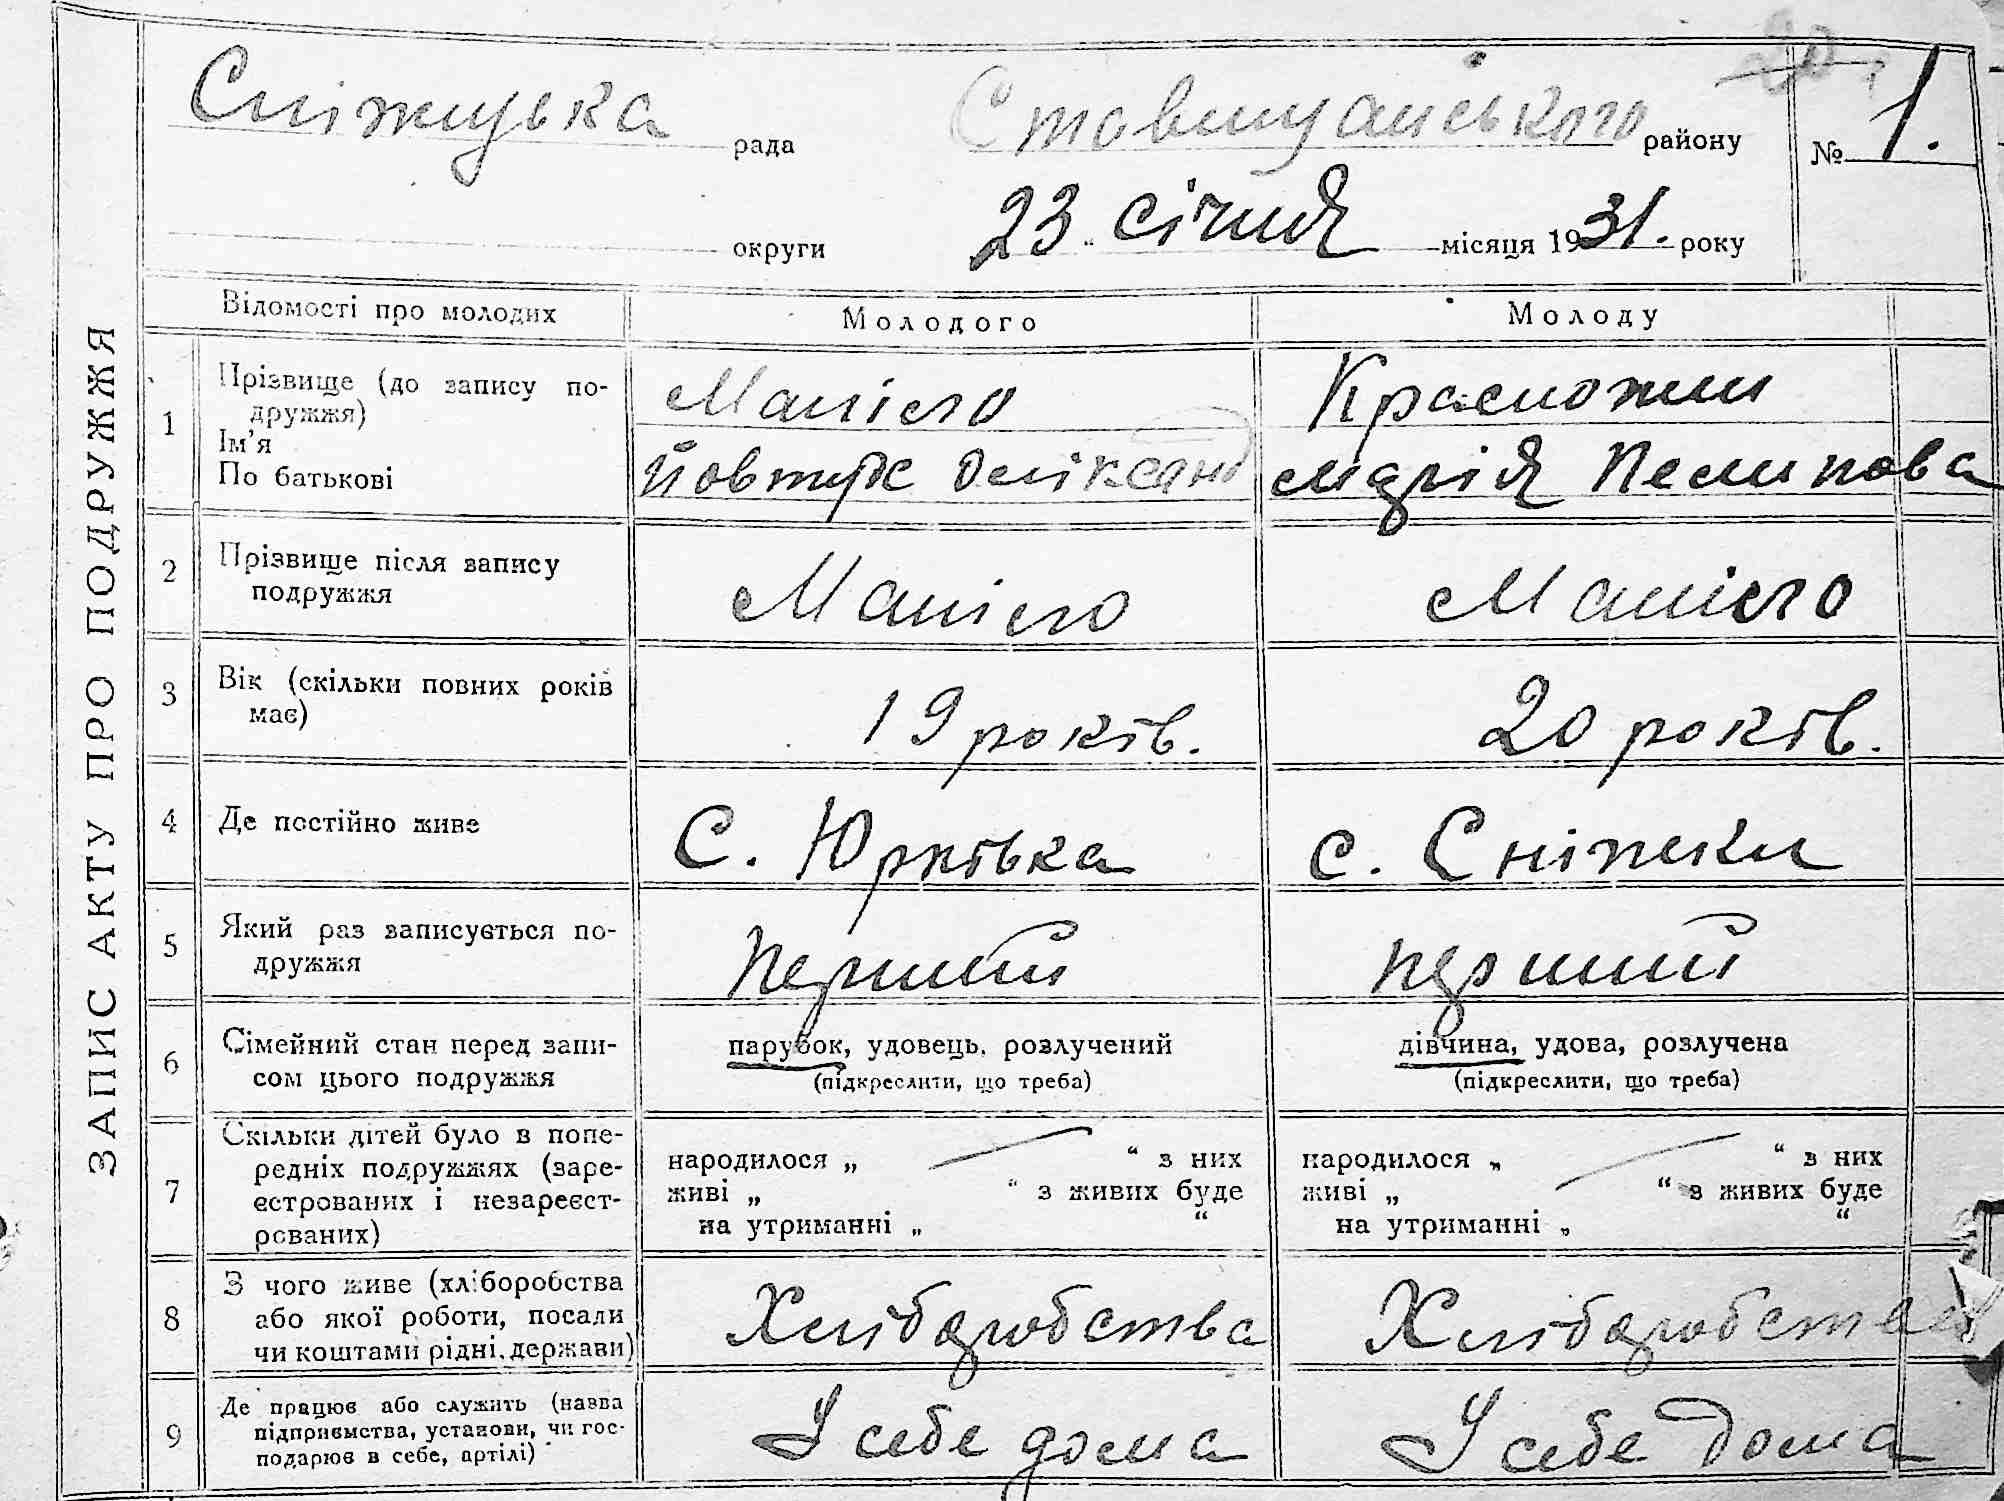 Сніжицька рада Ставищанського району № 1.
округи 23 січня місяця 1931. року
ЗАПИС АКТУ ПРО ПОДРУЖЖЯ
Відомості про молодих Молодого Молоду
1 Прізвище (до запису по-
дружжя)
Ім'я
По батькові
Манісло
Йовтух Оліксанд
Красножон
Марія Пелипова
2 Прізвище після запису
подружжя
Манісло Манісло
3 Вік (скільки повних років
має)
19 років. 20 років.
4 Де постійно живе С. Юрківка с. Сніжки
5 Який раз записується по-
дружжя
Перший перший
6 Сімейний стан перед запи-
сом цього подружжя
парубок, удовець, розлучений
(підкреслити, що треба)
дівчина, удова, розлучена
(підкреслити, що треба)
7 Скільки дітей було в попе-
редніх подружжях (заре-
єстрованих і незареєст-
рованих)
народилося „ “ з них
живі „ “ з живих буде
на утриманні „ “
народилося „ “ з них
живі „ “ з живих буде
на утриманні „ “
8 З чого живе (хліборобства
або якої роботи, посади
чи коштами рідні, держави)
Хліборобства Хліборобства
9 Де працює або служить (назва
підприємства, установи, чи гос-
подарює в себе, артілі)
У себе дома У себе дома